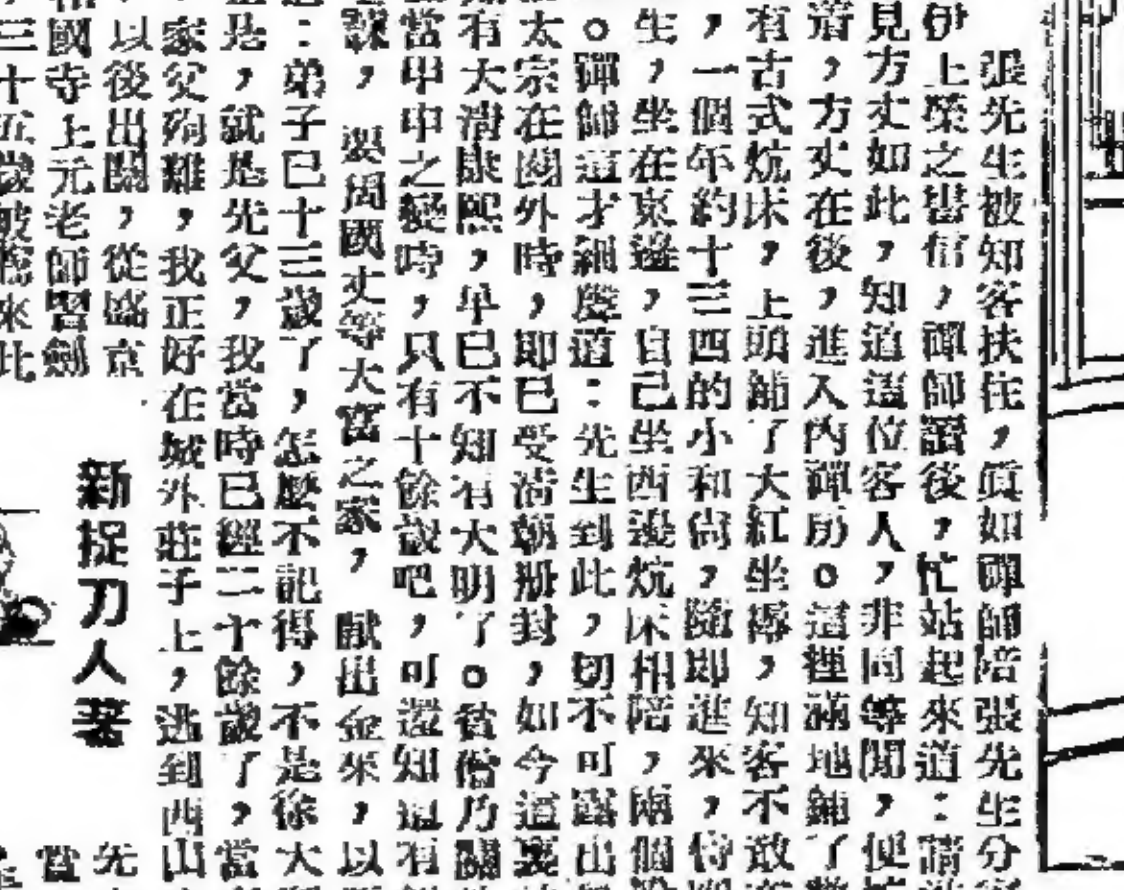 張先生被知客扶住，眞如禪師陪張先生分
伊上榮之書信，禪師讀後，忙站起來道：請
見方丈如此，知道這位客人，非同等閒，便
着，方丈在後，進入內禪房。這裡滿地鋪了
有古式炕床，上頭鋪了大紅坐褥，知客不敢
，一個年約十三四的小和尙，隨即進來，侍
生，坐在東邊，自己坐西邊炕床相陪，兩個
。禪師這才細聲道：先生到此，切不可露出
太宗在關外時，即已受淸朝册封，如今這裏
有大淸康熙，早已不知有大明了。貧僧乃關
當甲申之變時，只有十餘歲吧，可還知道有
課，選周國丈等大富之家，獻出金來，以
：弟子已十三歲了，怎麼不記得，不是徐大
是，就是先父，我當時已經二十餘歲了，當
家父殉難，我正好在城外莊子上，逃到西山
以後出關，從盛京
國寺上元老師習劍
三十五歲被薦來此
新捉刀人著
先
當